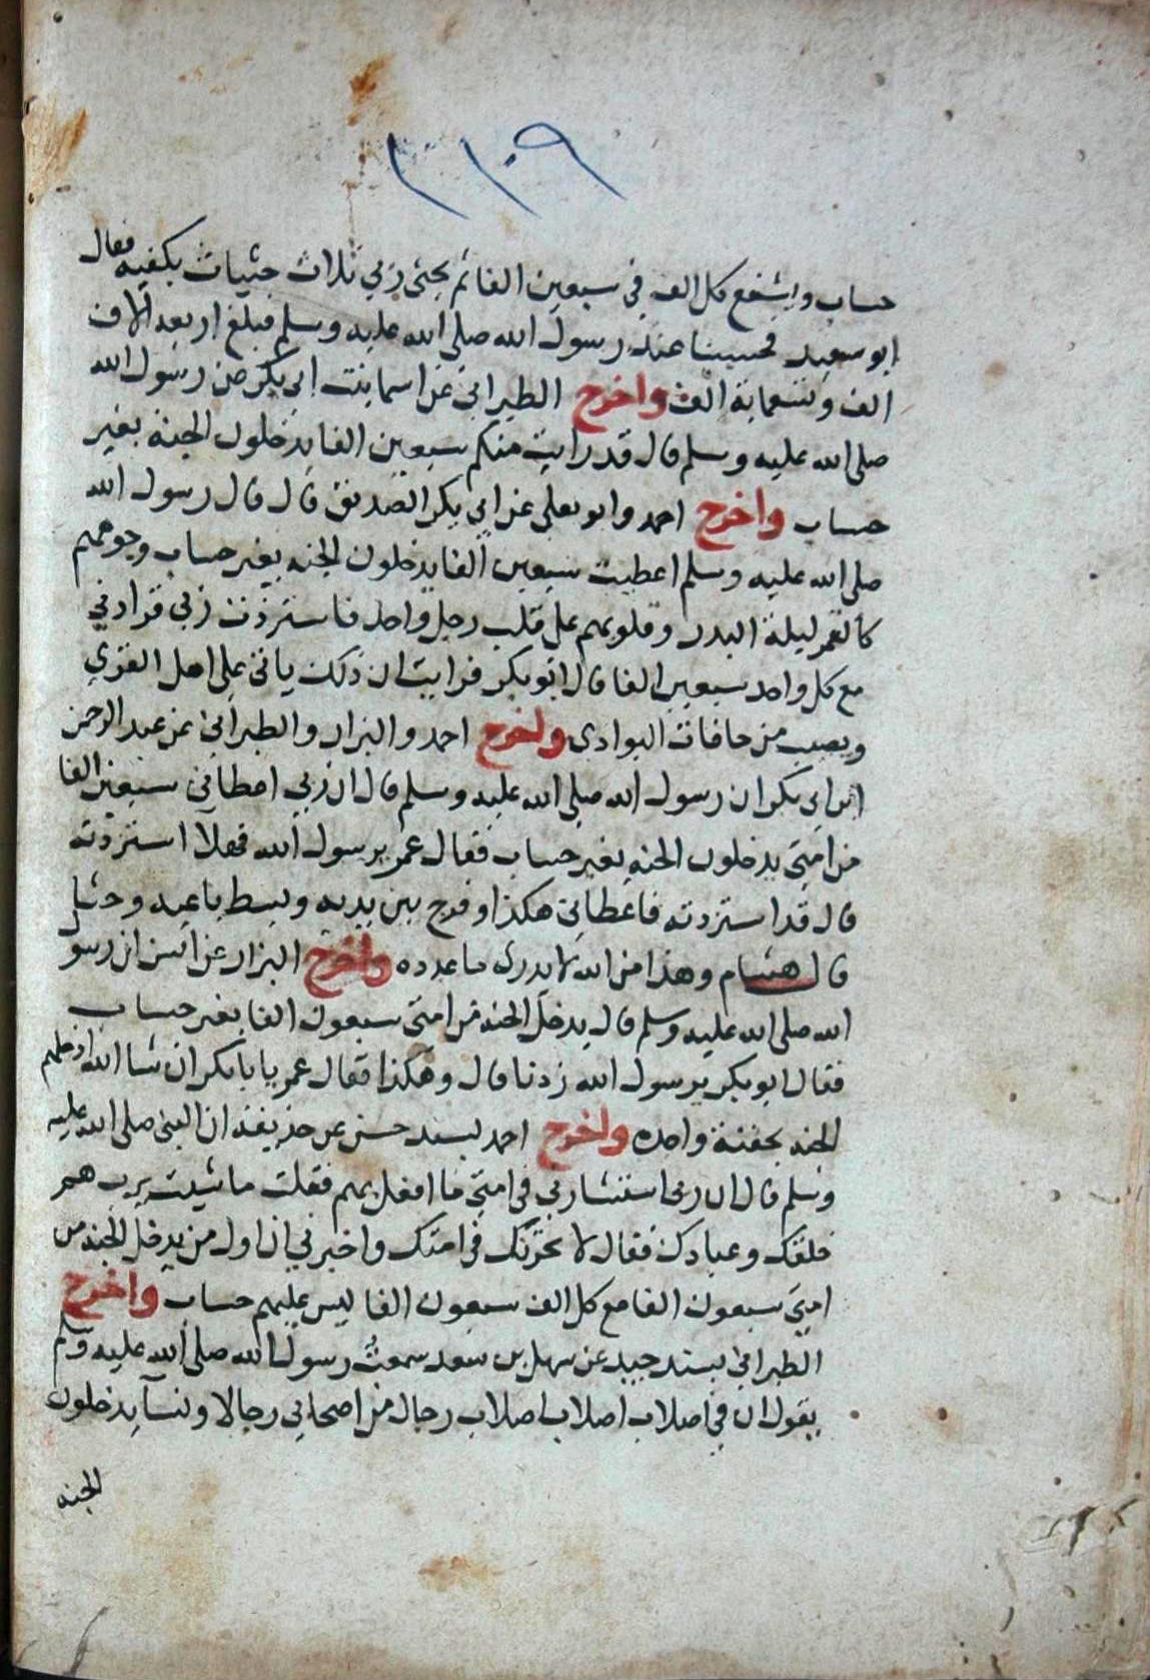 ٣١٠٩
حساب ويشفع كل الف في سبعين الفا ثم يحثي ربي ثلاث حثيات بكفيه فقال
ابو سعيد فحسبنا عند رسول الله صلى الله عليه وسلم فبلغ اربعة الاف
الف وتسعماية الف واخرج الطبراني عن اسما بنت ابي بكر عن رسول الله
صلى الله عليه وسلم قال قد رايت منكم سبعين الفا يدخلون الجنة بغير
حساب واخرج احمد وابو يعلى عن ابي بكر الصديق قال قال رسول الله
صلى الله عليه وسلم اعطيت سبعين الفا يدخلون الجنه بغير حساب وجوههم
كالقمر ليلة البدر وقلوبهم على قلب رجل واحد فاستزدت ربي فزادني
مع كل واحد سبعين الفا قال ابو بكر فرايت ان ذلك ياتي على اهل القري
ويصيب من حافات البوادي واخرج احمد والبزار والطبراني عن عبد الرحمن
ابن ابي بكر ان رسول الله صلى الله عليه وسلم قال ان ربي اعطاني سبعين الفا
من امتي يدخلون الجنه بغير حساب فقال عمر يرسول الله فهلا استزدته
قال قد استزدته فاعطاني هكذا وفرج بين يديه وبسط باعيه وحثا
قال هشام وهذا من الله لا يدري ما عدده واخرج البزار عن انس ان رسو
الله صلى الله عليه وسلم قال يدخل الجنه من امتي سبعون الفا بغير حساب
فقال ابو بكر يرسول الله زدنا قال وهكذا فقال عمر يا بابكر ان شا الله ادخلهم
الجنه بحفنة واحده واخرج احمد بسند حسن عن حذيفه ان النبي صلى الله عليه
وسلم قال ان ربي استشارني في امتي ما افعل بهم فقلت ما شيت يرب هم
خلقك وعبادك فقال لا نحزنك في امتك واخبرني ان اول من يدخل الجنه من
امتي سبعون الفا مع كل الف سبعون الفا ليس عليهم حساب واخرج
الطبراني بسند جيد عن سهل بن سعد سمعت رسول الله صلى الله عليه وسلم
يقول ان في اصلاب اصلاب اصلاب رجال من اصحابي رجالا ونسآ يدخلون
الجنه